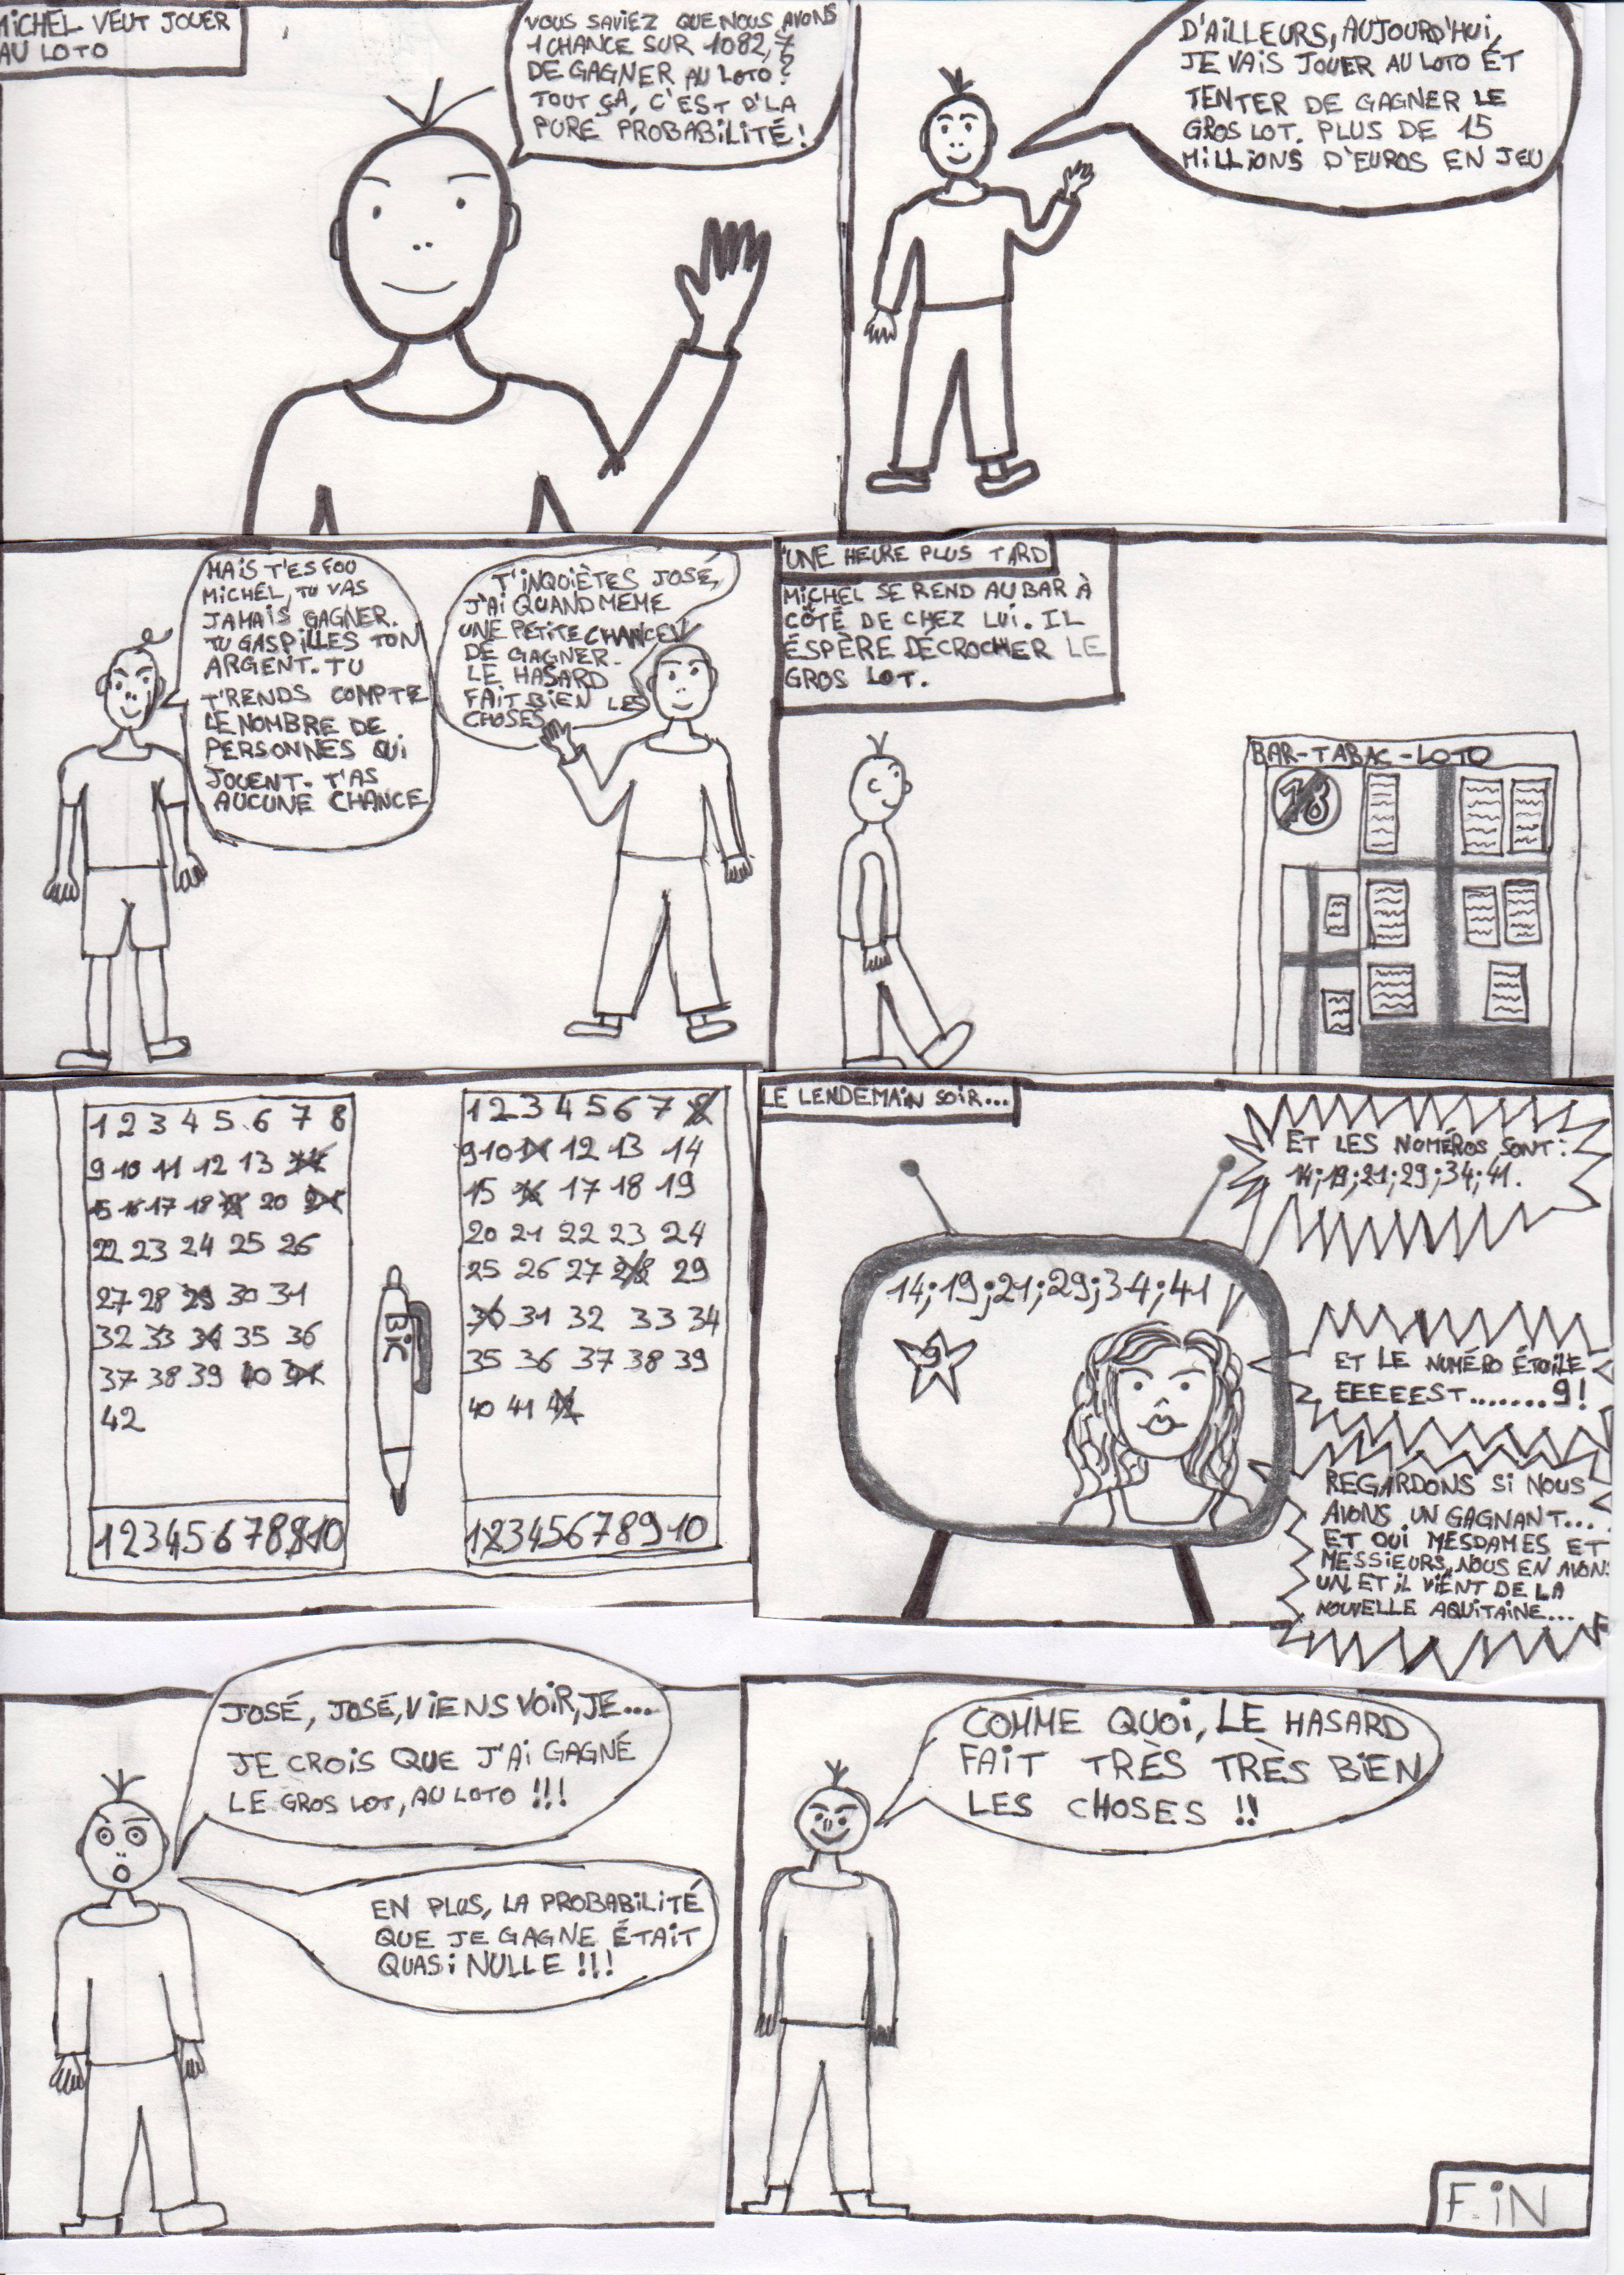 MICHEL VEUT JOUER
AU LOTO
VOUS SAVIEZ QUE NOUS AVONS
1 CHANCE SUR 1082,7
DE GAGNER AU LOTO?
TOUT ÇA, C'EST D'LA
PURE PROBABILITÉ!
D'AILLEURS, AUJOURD'HUI,
JE VAIS JOUER AU LOTO ET
TENTER DE GAGNER LE
GROS LOT. PLUS DE 15
MILLIONS D'EUROS EN JEU
MAIS T'ES FOU
MICHEL, TU VAS
JAMAIS GAGNER.
TU GASPILLES TON
ARGENT. TU
T'RENDS COMPTE
LE NOMBRE DE
PERSONNES QUI
JOUENT. T'AS
AUCUNE CHANCE
T'INQUIÈTES JOSÉ,
J'AI QUAND MEME
UNE PETITE CHANCE
DE GAGNER.
LE HASARD
FAIT BIEN LES
CHOSES
UNE HEURE PLUS TARD
MICHEL SE REND AU BAR À
CÔTÉ DE CHEZ LUI. IL
ÉSPÈRE DÉCROCHER LE
GROS LOT.
BAR-TABAC-LOTO
18
1 2 3 4 5 6 7 8
9 10 11 12 13 14
15 16 17 18 19 20 21
22 23 24 25 26
27 28 29 30 31
32 33 34 35 36
37 38 39 40 41
42
1 2 3 4 5 6 7 8 9 10
BIC
1 2 3 4 5 6 7 8
9 10 11 12 13 14
15 16 17 18 19
20 21 22 23 24
25 26 27 28 29
30 31 32 33 34
35 36 37 38 39
40 41 42
1 2 3 4 5 6 7 8 9 10
LE LENDEMAIN SOIR...
ET LES NUMÉROS SONT:
14;19;21;29;34;41.
14;19;21;29;34;41
9
ET LE NUMÉRO ÉTOILE
EEEEEST........9!
REGARDONS SI NOUS
AVONS UN GAGNANT...
ET OUI MESDAMES ET
MESSIEURS, NOUS EN AVONS
UN, ET IL VIENT DE LA
NOUVELLE AQUITAINE...
JOSÉ, JOSÉ, VIENS VOIR, JE....
JE CROIS QUE J'AI GAGNÉ
LE GROS LOT, AU LOTO !!!
EN PLUS, LA PROBABILITÉ
QUE JE GAGNE ÉTAIT
QUASI NULLE !!!
COMME QUOI, LE HASARD
FAIT TRÈS TRÈS BIEN
LES CHOSES !!
F.iN